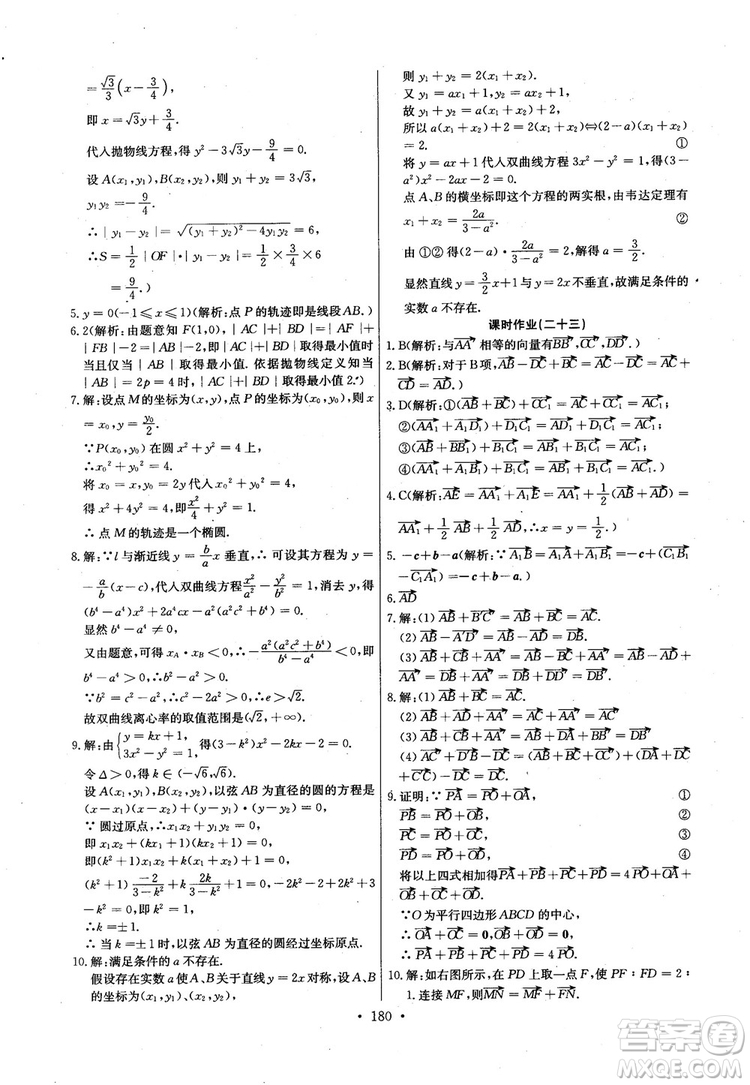 =√3/3(x-3/4),
即 x=√3y+3/4.
代入抛物线方程,得 y²-3√3y-9/4=0.
设 A(x₁,y₁),B(x₂,y₂),则 y₁+y₂=3√3,
y₁y₂=-9/4.
∴|y₁-y₂|=√((y₁+y₂)²-4y₁y₂)=6,
∴S=1/2|OF|·|y₁-y₂|=1/2×3/4×6
=9/4.)
5. y=0(-1≤x≤1)(解析:点 P 的轨迹即是线段AB.)
6. 2(解析:由题意知 F(1,0),|AC|+|BD|=|AF|+
|FB|-2=|AB|-2,即|AB|取得最小值时
当且仅当|AB|取得最小值.依据抛物线定义知当
|AB|=2p=4时,|AC|+|BD|取得最小值2.)
7. 解:设点 M 的坐标为(x,y),点 P 的坐标为(x₀,y₀),则 x
=x₀,y=y₀/2.
∵P(x₀,y₀)在圆 x²+y²=4 上,
∴x₀²+y₀²=4.
将 x₀=x,y₀=2y 代入 x₀²+y₀²=4
得 x²+4y²=4,即x²/4+y²=1.
∴点 M 的轨迹是一个椭圆.
8. 解:∵l与渐近线 y=b/a x 垂直,∴可设其方程为 y=
-a/b(x-c),代入双曲线方程x²/a²-y²/b²=1,消去 y,得
(b⁴-a⁴)x²+2a⁴cx-a²(a²c²+b⁴)=0.
显然 b⁴-a⁴≠0.
又由题意,可得 x_A·x_B<0,∴-a²(a²c²+b⁴)/(b⁴-a⁴)<0.即
b⁴-a⁴>0.
∵b²=c²-a²,∴c²-a²>a²,即 c²>2a².
故双曲线离心率的取值范围是(√2,+∞).
9. 解:由{y=kx+1, 3x²-y²=1, 得(3-k²)x²-2kx-2=0.
令Δ>0,得 k∈(-√6,√6).
设 A(x₁,y₁),B(x₂,y₂),以弦 AB 为直径的圆的方程是
(x-x₁)(x-x₂)+(y-y₁)(y-y₂)=0.
∵圆过原点,∴x₁x₂+y₁y₂=0.
即(k²+1)x₁x₂+k(x₁+x₂)+1=0.
(k²+1)-2/(3-k²)+k 2k/(3-k²)+1=0.即 k²=1.
∴k=±1.
∴当 k=±1时,以弦 AB 为直径的圆经过坐标原点.
10. 解:满足条件的 a 不存在.
假设存在实数 a 使 A、B 关于直线 y=2x 对称,设 A、B
的坐标为(x₁,y₁),(x₂,y₂),
则 y₁+y₂=2(x₁+x₂).
又 y₁=ax₁+1,y₂=ax₂+1,
故 y₁+y₂=a(x₁+x₂)+2,
所以 a(x₁+x₂)+2=2(x₁+x₂)⇔(2-a)(x₁+x₂)
=2. ①
将 y=ax+1代入双曲线方程 3x²-y²=1得到(3-
a²)x²-2ax-2=0.
点 A、B 的横坐标即这个方程的两实根,由韦达定理有
x₁+x₂=2a/(3-a²). ②
由①②得(2-a)·2a/(3-a²)=2,解得 a=3/2.
显然直线 y=3/2x+1与 y=2x 不垂直,故满足条件的
实数 a 不存在.
课时作业(二十三)
1. B(解析:与AA'→相等的向量有BB'→,CC'→,DD'→.)
2. B(解析:对于 B 项,AB→+BC→+CD→=AC→+
CD→=AD→.)
3. D(解析:①(AB→+BC→)+CC₁→=AC→+CC₁→=AC₁→;
②(AA₁→+A₁D₁→)+D₁C₁→=AD₁→+D₁C₁→=AC₁→;
③(AB→+BB₁→)+B₁C₁→=AB₁→+B₁C₁→=AC₁→;
④(AA₁→+A₁B₁→)+B₁C₁→=AB₁→+B₁C₁→=AC₁→.)
4. C(解析:AE→=AA₁→+A₁E→=AA₁→+1/2(AB→+AD→)=
AA₁→+1/2AB→+1/2AD→,∴x=y=1/2.)
5. -c+b-a(解析:∵A₁B→=A₁C₁→+C₁B→=C₁B→
-C₁A₁→)
6. AD→
7. 解:(1)AB→+B'C'→=AB→+BC→=AC→.
(2)AB→-A'D'→+AA'→=AB→-AD→+AA'→=DB'→.
(3)AB→+CB→+AA'→=AB→-BC→+AA'→=AB→-
AD→+AA'→=DB→+AA'→=DB'→.
8. 解:(1)AB→+BC→+AA'→=AC→+AA'→=AC'→
(2)AB→+AD→+AA'→=AC→+AA'→=AC'→.
(3)AB→+CB→+AA'→=AB→-AD→+AA'→=DB'→.
(4)AC'→+D'B→-DC→=(AB→+BC'→)+(D'C'→+C'B→)
-DC→=AB→+DC→-DC→=AB→.
9. 证明:∵PA→=PO→+OA→, ①
PB→=PO→+OB→, ②
PC→=PO→+OC→, ③
PD→=PO→+OD→. ④
将以上四式相加得PA→+PB→+PC→+PD→=4PO→+
∵O 为平行四边形 ABCD 的中心,
∴OA→+OC→=0,OB→+OD→=0.
∴PA→+PB→+PC→+PD→=4PO→.
10. 解:如右图所示,在 PD 上取一点 F,使 PF∶FD=2∶
1.连接 MF,则MN→=MF→+FN→.
• 180 •
答案圈